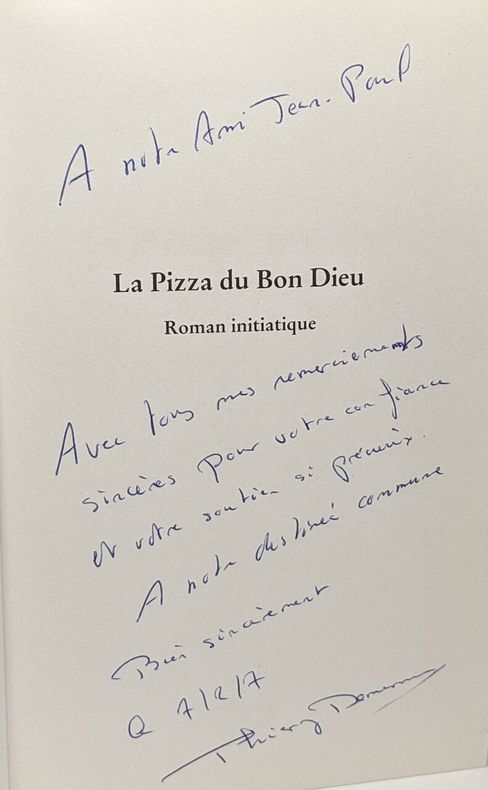 A notre Ami Jean-Paul
La Pizza du Bon Dieu
Roman initiatique
Avec tous mes remerciements
sincères pour votre confiance
et votre soutien si précieux.
A notre destinée commune
Bien sincèrement
7/2/7
Thierry